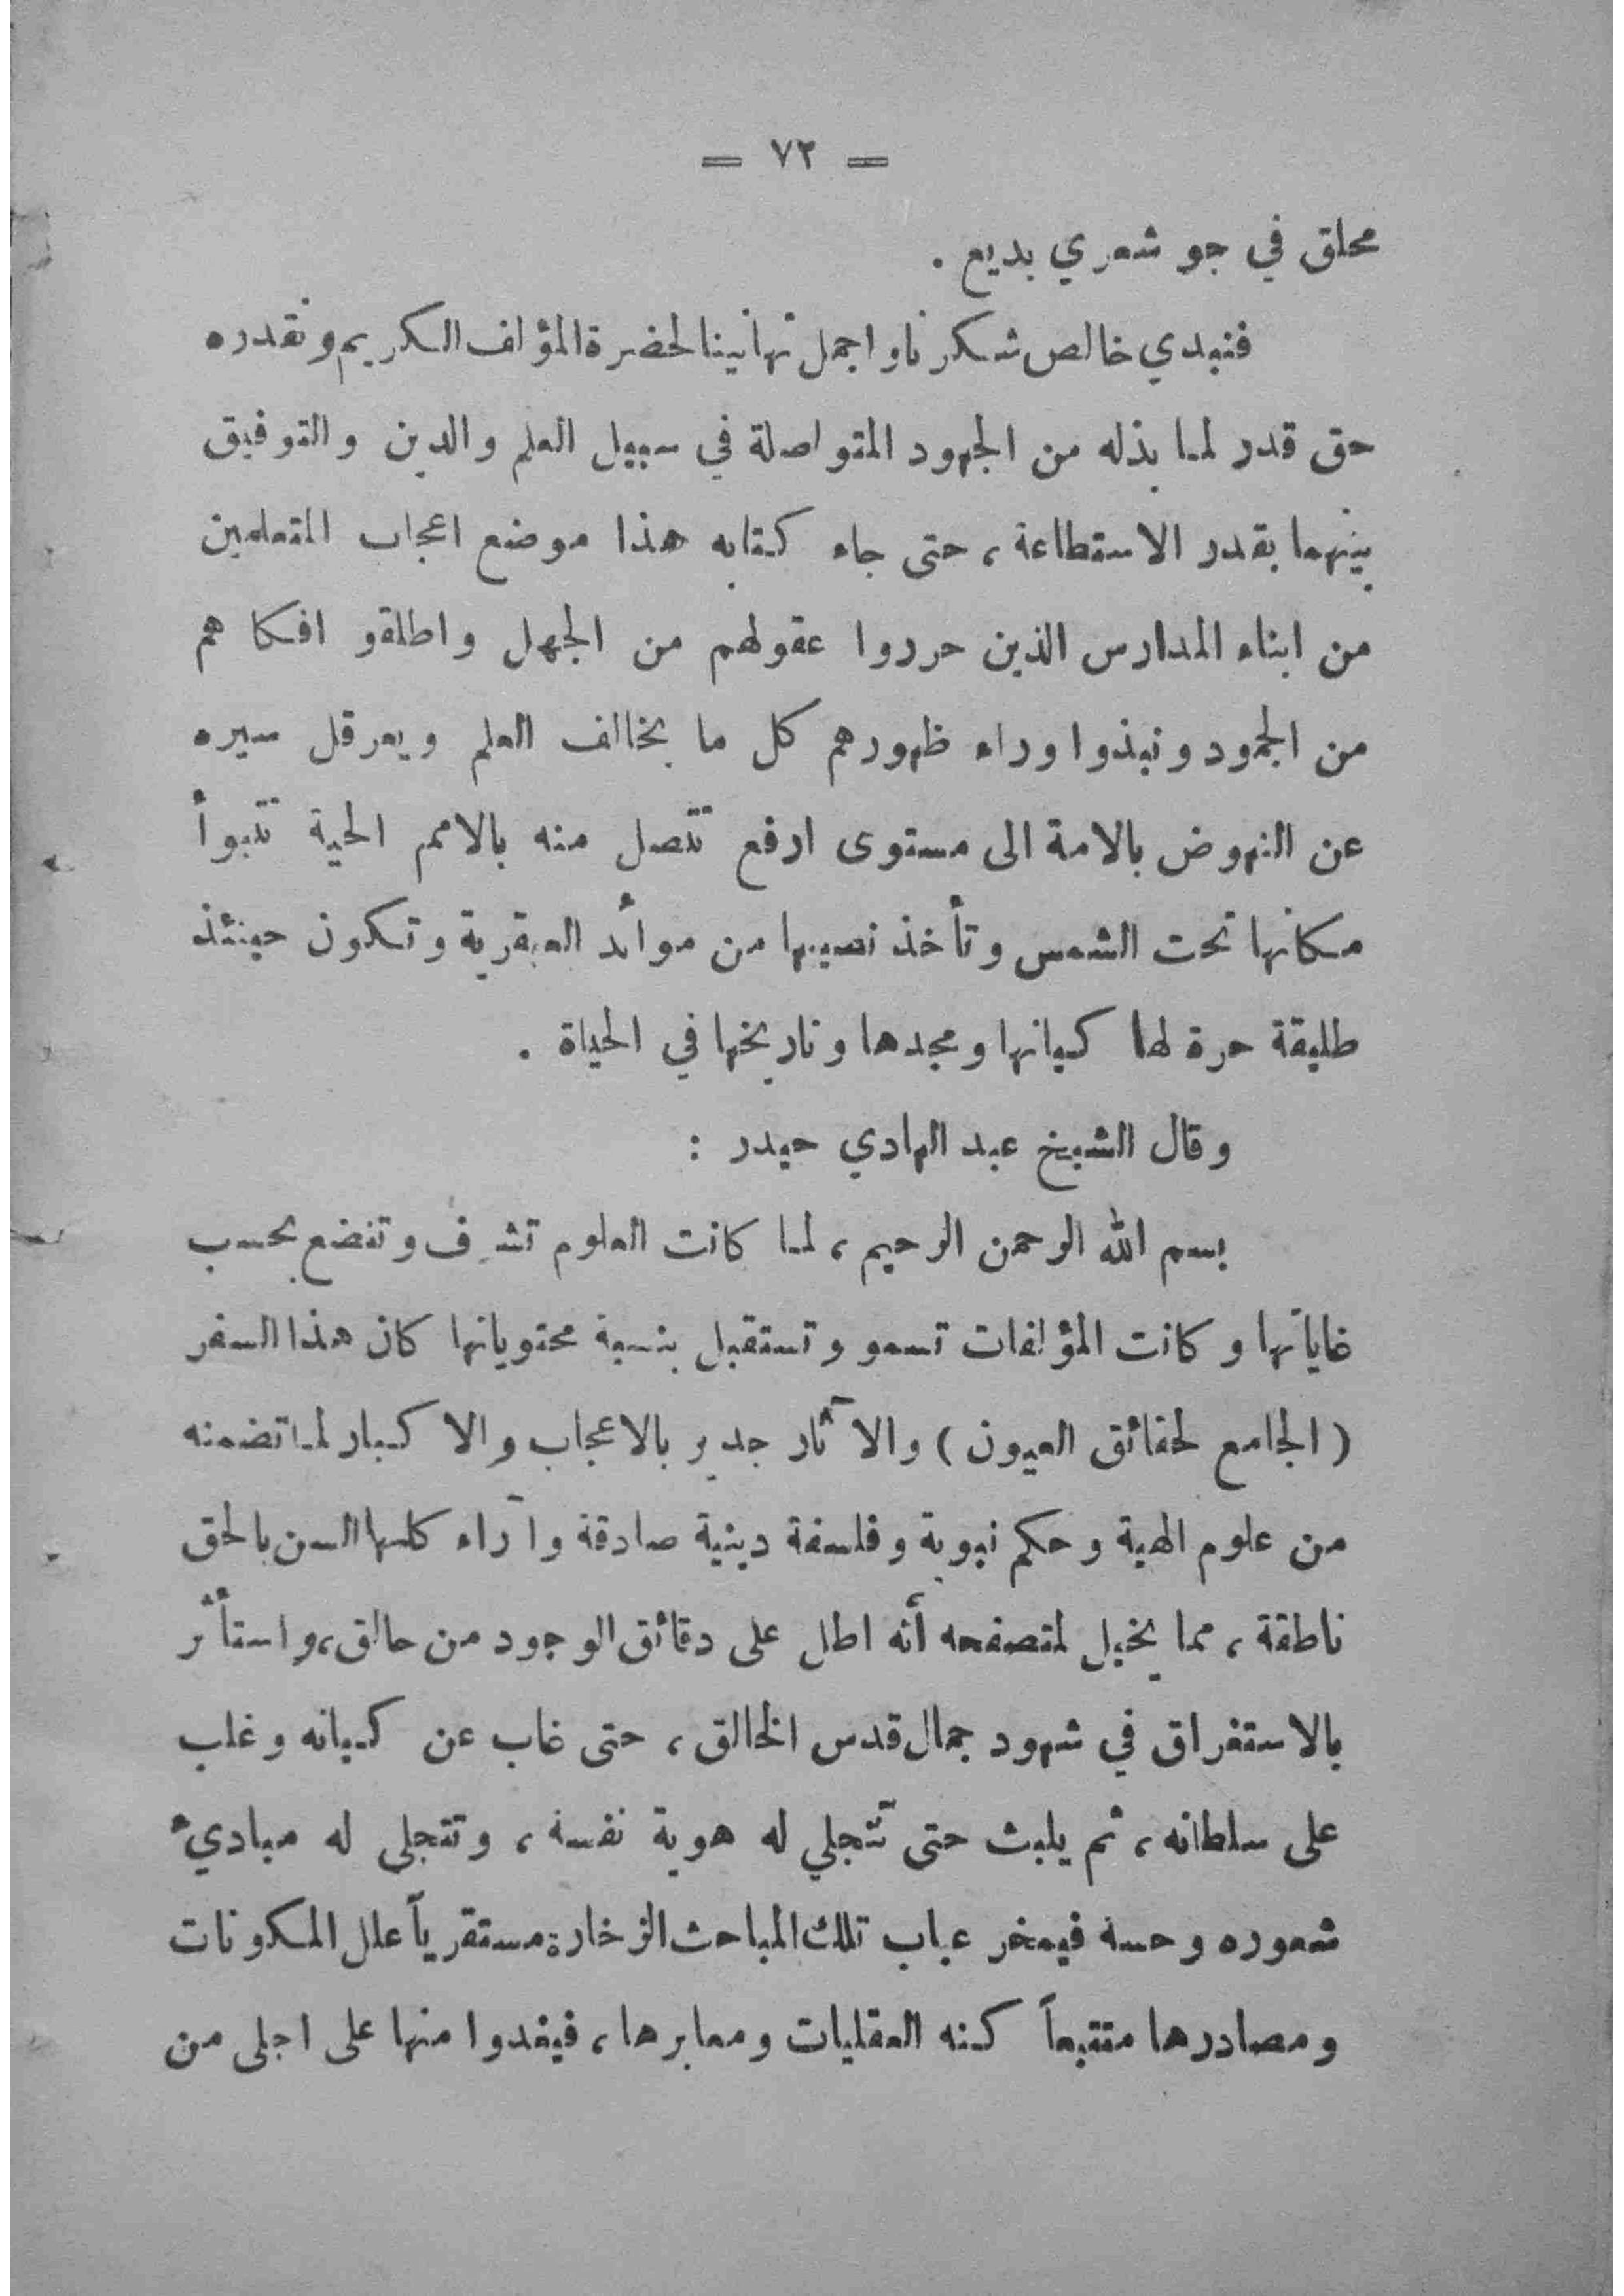 = ٧٢ =
محلق في جو شعري بديع .
فنبدي خالص شكرنا واجمل تهانينا لحضرة المؤلف الكريم ونقدره
حق قدر لما بذله من الجهود المتواصلة في سبيل العلم والدين والتوفيق
بينهما بقدر الاستطاعة ، حتى جاء كتابه هذا موضع اعجاب المتعلمين
من ابناء المدارس الذين حرروا عقولهم من الجهل واطلقو افكا هم
من الجمود ونبذوا وراء ظهورهم كل ما يخالف العلم ويعرقل سيره
عن النهوض بالامة الى مستوى ارفع تتصل منه بالامم الحية تتبوأ
مكانها تحت الشمس وتأخذ نصيبها من موائد العبقرية وتكون حينئذ
طليقة حرة لها كيانها ومجدها وتاريخها في الحياة .
وقال الشيخ عبد الهادي حيدر :
بسم الله الرحمن الرحيم ، لما كانت العلوم تشرف وتتضع بحسب
غاياتها وكانت المؤلفات تسمو وتستقبل بنسبة محتوياتها كان هذا السفر
( الجامع لحقائق العيون ) والآثار جدير بالاعجاب والاكبار لما تضمنه
من علوم الهية وحكم نبوية وفلسفة دينية صادقة وآراء كلها السن بالحق
ناطقة ، مما يخيل لمتصفحه أنه اطل على دقائق الوجود من حالق ، واستأثر
بالاستغراق في شهود جمال قدس الخالق ، حتى غاب عن كيانه وغلب
على سلطانه ، ثم يلبث حتى تتجلي له هوية نفسه ، وتتجلى له مباديء
شعوره وحسه فيمخر عباب تلك المباحث الزخارة مستقرياً علل المكونات
ومصادرها متتبعاً كنه العقليات ومعابرها ، فيغدوا منها على اجلى من